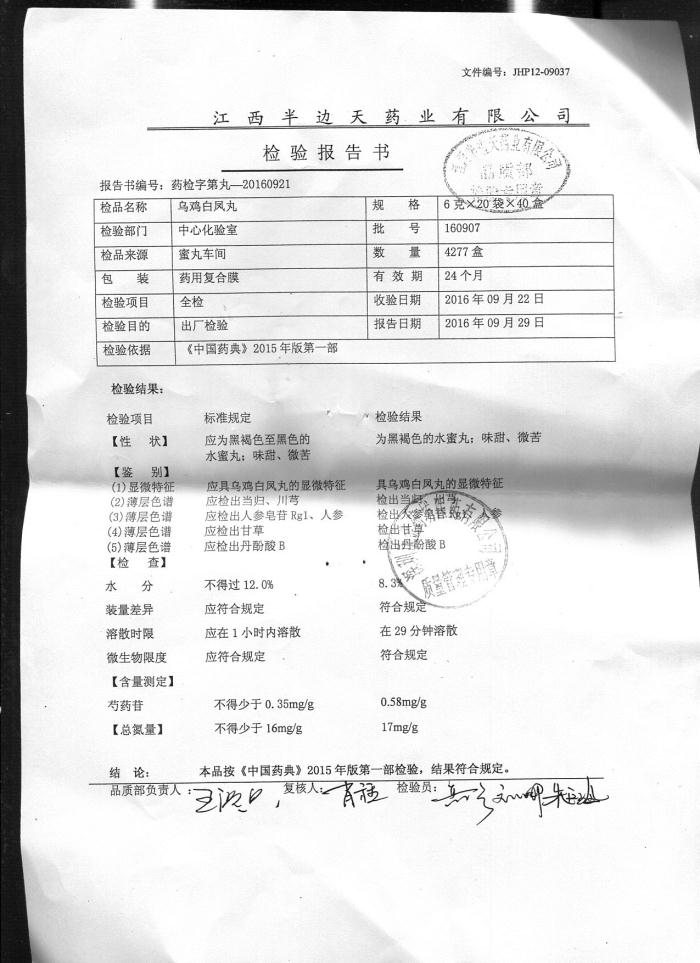 文件编号：JHP12-09037
江西半边天药业有限公司
检验报告书
报告书编号：药检字第丸—20160921
检品名称 乌鸡白凤丸 规格 6克×20袋×40盒
检验部门 中心化验室 批号 160907
检品来源 蜜丸车间 数量 4277盒
包装 药用复合膜 有效期 24个月
检验项目 全检 收验日期 2016年09月22日
检验目的 出厂检验 报告日期 2016年09月29日
检验依据 《中国药典》2015年版第一部
检验结果：
检验项目 标准规定 检验结果
【性 状】 应为黑褐色至黑色的 为黑褐色的水蜜丸；味甜、微苦
水蜜丸；味甜、微苦
【鉴 别】
(1)显微特征 应具乌鸡白凤丸的显微特征 具乌鸡白凤丸的显微特征
(2)薄层色谱 应检出当归、川芎 检出当归、川芎
(3)薄层色谱 应检出人参皂苷Rg1、人参 检出人参皂苷Rg1、人参
(4)薄层色谱 应检出甘草 检出甘草
(5)薄层色谱 应检出丹酚酸B 检出丹酚酸B
【检 查】
水分 不得过12.0% 8.3%
装量差异 应符合规定 符合规定
溶散时限 应在1小时内溶散 在29分钟溶散
微生物限度 应符合规定 符合规定
【含量测定】
芍药苷 不得少于0.35mg/g 0.58mg/g
【总氮量】 不得少于16mg/g 17mg/g
结论： 本品按《中国药典》2015年版第一部检验，结果符合规定。
品质部负责人： 复核人： 检验员：
品质部
质量管理专用章